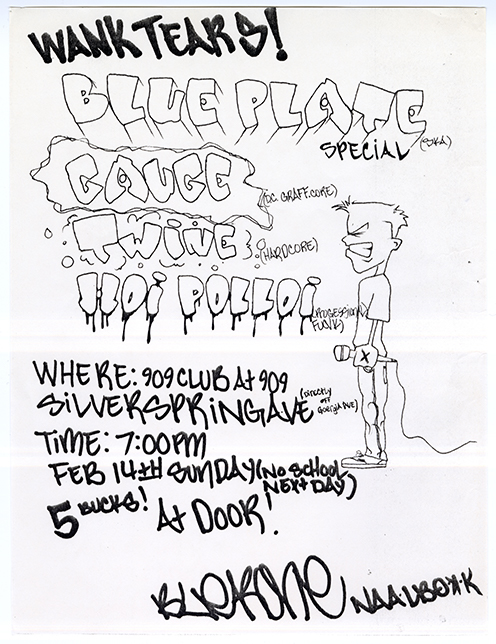 WANK TEARS!
BLUE PLATE
SPECIAL (SKA)
GAUGE (D.C. GRAFF.CORE)
TWINE (HARDCORE)
HOI POLLOI
WHERE: 909 CLUB At 909
SiLVERSPRiNG AVE (DiRECtLY OFF GEORGiA AVE)
TiME: 7:00PM
FEB 14tH SUNDAY (NO SCHOOL NEXt DAY)
5 BUCKS! At DOOR!
X